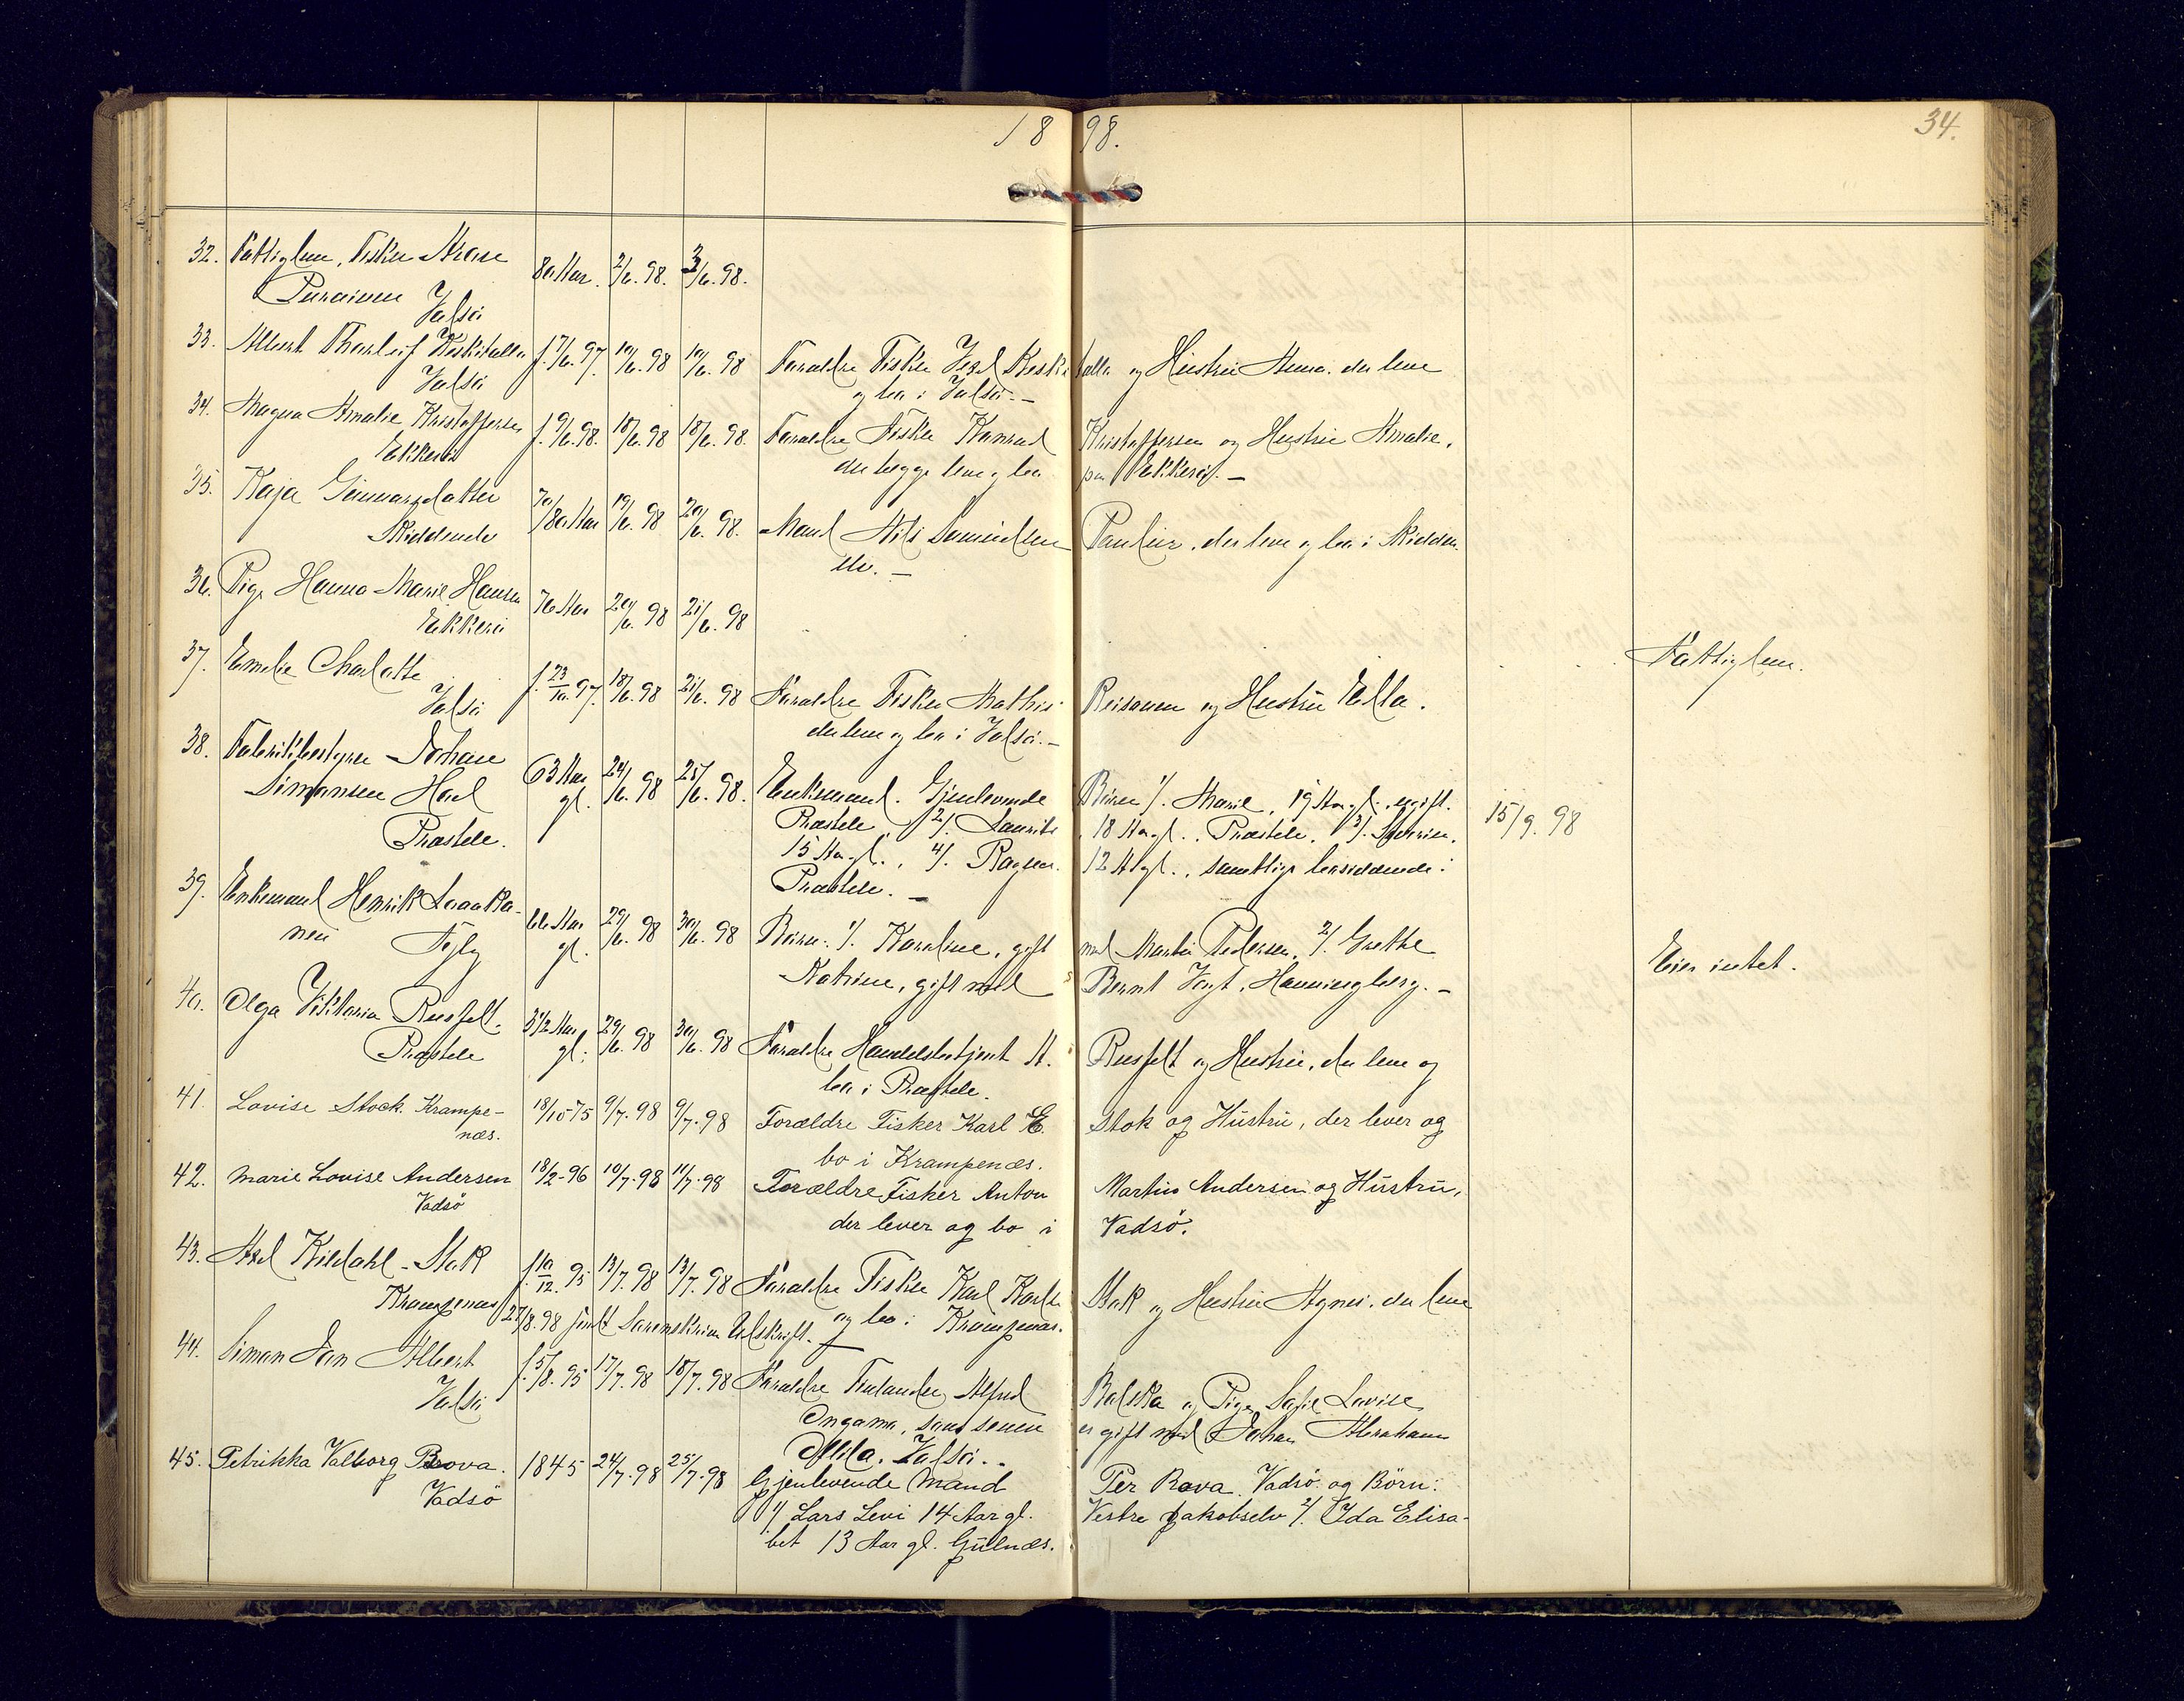 1898.
34.
32. Fattiglem, Fisker
Vadsö
80 Aar. 2/6. 98. 3/6. 98.
33. Albert Thorleif Koskitallo
Vadsö
f. 17/6. 97. 10/6. 98 10/6. 98 Forældre Fisker Koskitallo og Hustru Anna. der leve
og bo i Vadsö. —
34. Magna Amalie Kristoffersen
Ekkerö
f. 9/6. 98. 18/6. 98 18/6. 98. Forældre Fisker Konrad Kristoffersen og Hustru Amalie.
der begge leve og bo paa Ekkerö. —
35. Kaja Gunnarsdatter
Skiddenelv
70/80 Aar 19/6. 98 20/6. 98. Mand Nils Samuelsen der leve og bo i Skidden
elv. —
36. Pige Hanna Marie Hansen
Ekkerö
76 Aar 20/6. 98 21/6. 98
Fattiglem.
37. Emelie Charlotte
Vadsö
f. 23/10. 97. 18/6. 98 21/6. 98 Forældre Fisker Mathis Reisanen og Hustru Ella.
der leve og bo i Vadsö. —
38. Fabrikbestyrer Johan
Simonsen Hoel
Præstelv.
63 Aar gl. 24/6. 98 25/6. 98. Enkemand. Gjenlevende Børn 1/. Marie, 19 Aar gl., ugift.
Præstelv, 2/. Laurits 18 Aar gl., Præstelv, 3/.
15 Aar gl., 4/. Ragna 12 A gl., samtlige hensiddende i
Præstelv. —
15/9. 98
39. Enkemand Henrik Laaka-
nen
66 Aar gl. 29/6. 98 30/6. 98 Børn: 1/. Karoline, gift med Martin Pedersen, 2/. Grethe
Katrine, gift med Bernt Vogt, Havningberg. —
Eier intet.
40. Olga Viktoria Rusfelt.
Præstelv
3 1/2 Aar gl. 29/6. 98 30/6. 98 Forældre Handelsbetjent A. Rusfelt og Hustru, der leve og
bo i Præstelv.
41. Lovise Stock. Krampe-
næs.
18/10-75 9/7-98 9/7-98 Forældre Fisker Karl E. Stok og Hustru, der lever og
bo i Krampenæs.
42. Marie Lovise Andersen
Vadsö
18/2-96 10/7-98 11/7-98 Forældre Fisker Anton Martin Andersen og Hustru,
der lever og bo i Vadsö.
43. Axel Kildahl Stok
Krampenæs
f. 10/12. 95 13/7. 98 13/7. 98 Forældre Fisker Karl Stok og Hustru Agnes. der leve
og bo i Krampenæs.
27/8. 98 Sorenskriver Udskrift.
44. Simon Jan Albert
Vadsö
f. 5/8. 95 17/7. 98 18/7. 98 Forældre Finlænder Alfred og Pige Sofie Lovise
Ongamo, som senere er gift med Johan Abraham
Vadsö. —
45. Petrikka Valborg Rova.
Vadsö
1845 24/7-98 25/7-98 Gjenlevende Mand Per Rova. Vadsö og Börn:
1/ Lars Levi 14 Aar gl. Vestre Jakobselv 2/. Ida Elisa-
bet 13 Aar gl. Gulnæs.